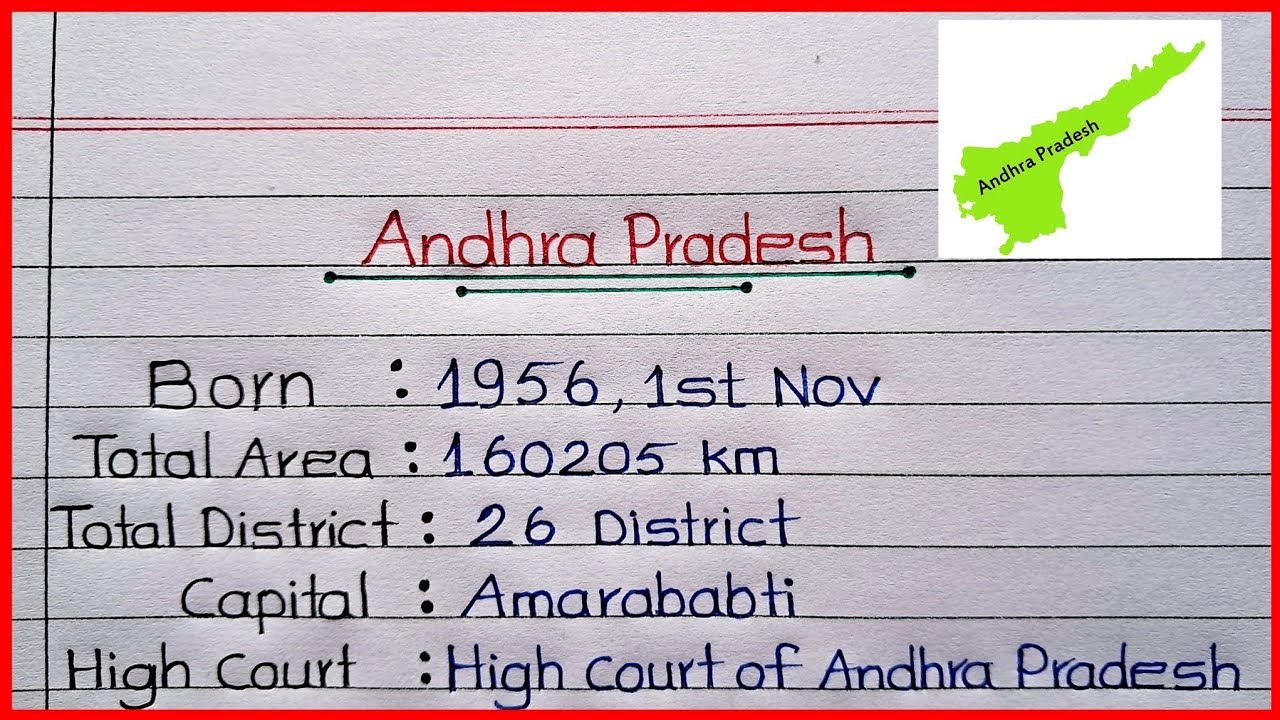 Andhra Pradesh
Andhra Pradesh
Born : 1956, 1st Nov
Total Area : 160205 km
Total District : 26 District
Capital : Amarababti
High Court : High Court of Andhra Pradesh